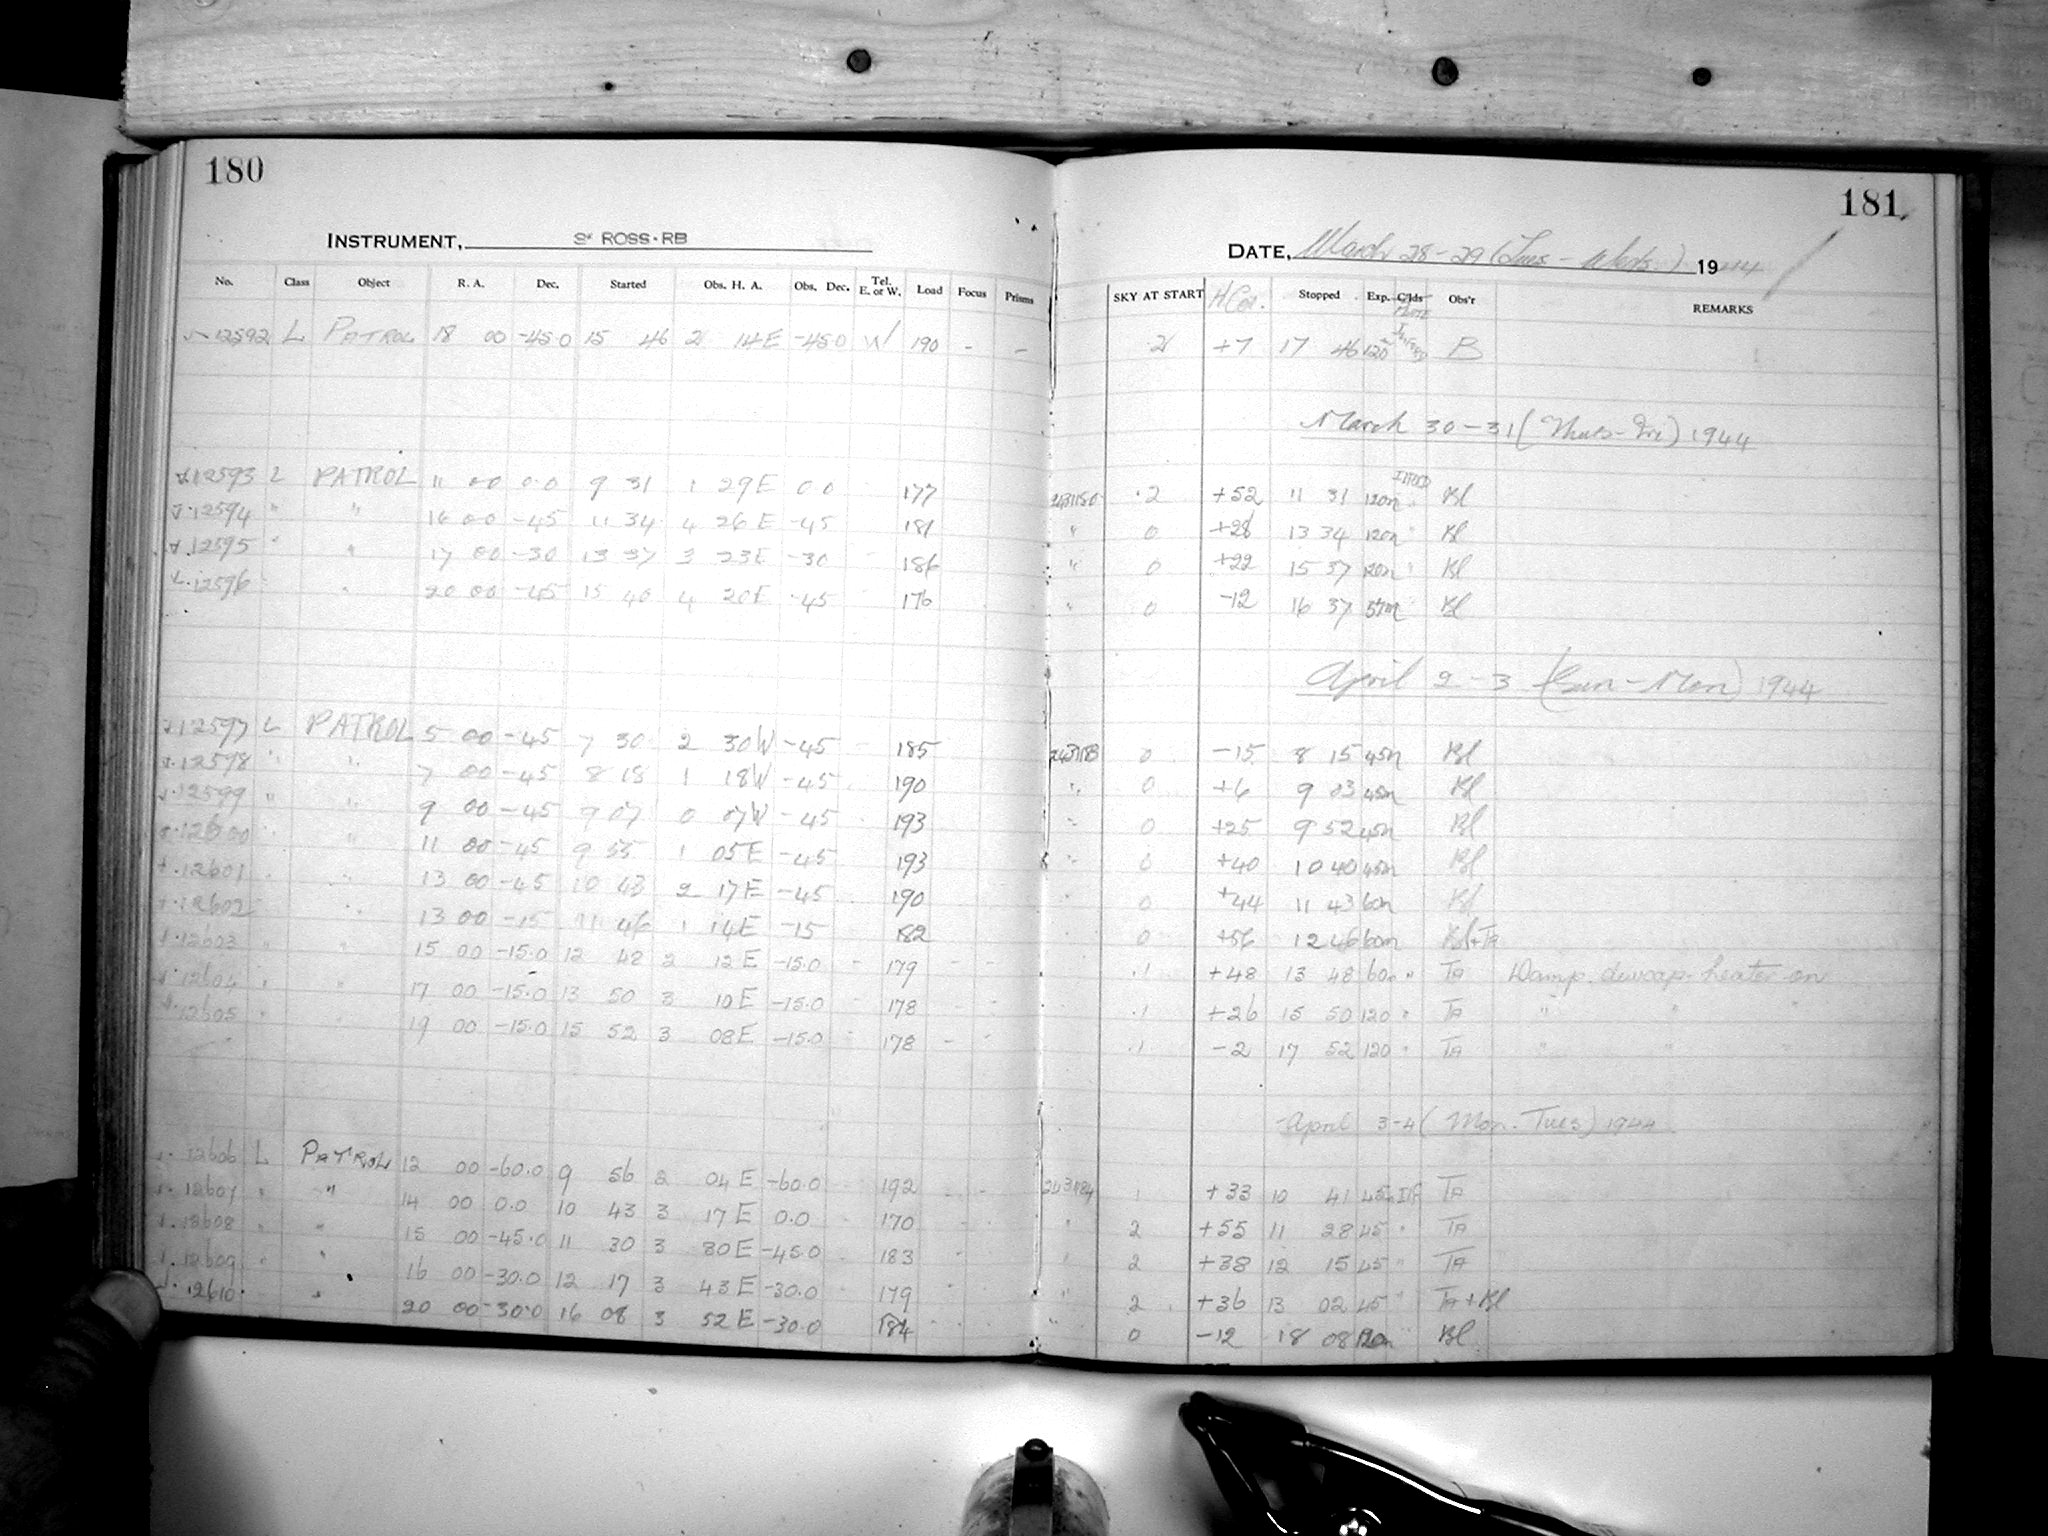 180
INSTRUMENT, ROSS-RB
No. Class Object R. A. Dec. Started Obs. H. A. Obs. Dec. Tel. E. or W. Load Focus Prisms
12592 L PATROL 18 00 -45.0 15 46 2 14E -45.0 W 190 - -
12593 L PATROL 11 00 0.0 9 31 1 29E 0.0 177
12594 " " 16 00 -45 11 34 4 26E -45 181
12595 " " 17 00 -30 13 37 3 23E -30 186
12596 " 20 00 -45 15 40 4 20E -45 176
12597 L PATROL 5 00 -45 7 30 2 30W -45 185
12598 " " 7 00 -45 8 18 1 18W -45 190
12599 " " 9 00 -45 9 07 0 07W -45 193
12600 " " 11 00 -45 9 55 1 05E -45 193
12601 " " 13 00 -45 10 43 2 17E -45 190
12602 " 13 00 -15 11 46 1 14E -15 182
12603 " " 15 00 -15.0 12 48 2 12E -15.0 179 - -
12604 " " 17 00 -15.0 13 50 3 10E -15.0 178
12605 " " 19 00 -15.0 15 52 3 08E -15.0 178 - -
12606 L PATROL 12 00 -60.0 9 56 2 04E -60.0 192
12607 " " 14 00 0.0 10 43 3 17E 0.0 170
12608 " " 15 00 -45.0 11 30 3 30E -45.0 183
12609 " " 16 00 -30.0 12 17 3 43E -30.0 179
12610 " 20 00 -30.0 16 08 3 52E -30.0 184
181
DATE, March 28-29 (Tues - Weds) 1944
SKY AT START Stopped Exp. Clds Obs'r REMARKS
PLATE
2 +7 17 46 120 B
March 30-31 (Thurs-Fri) 1944
.2 +52 11 31 120m Bl
" 0 +28 13 34 120m " Bl
" 0 +22 15 37 120m " Bl
" 0 -12 16 37 57m Bl
April 2-3 (Sun-Mon) 1944
0 -15 8 15 45m Bl
" 0 +6 9 03 45m Bl
" 0 +25 9 52 45m Bl
" 0 +40 10 40 45m Bl
" 0 +44 11 43 60m Bl
0 +56 12 46 60m Bl+TA
.1 +48 13 48 60m " TA Damp. dewcap-heater on
.1 +26 15 50 120 " TA " "
.1 -2 17 52 120 " TA " "
April 3-4 (Mon-Tues) 1944
243184 1 +33 10 41 45m TA
" 2 +55 11 28 45 " TA
" 2 +38 12 15 45 " TA
" 2 +36 13 02 45 " TA+Bl
" 0 -12 18 08 120m " Bl